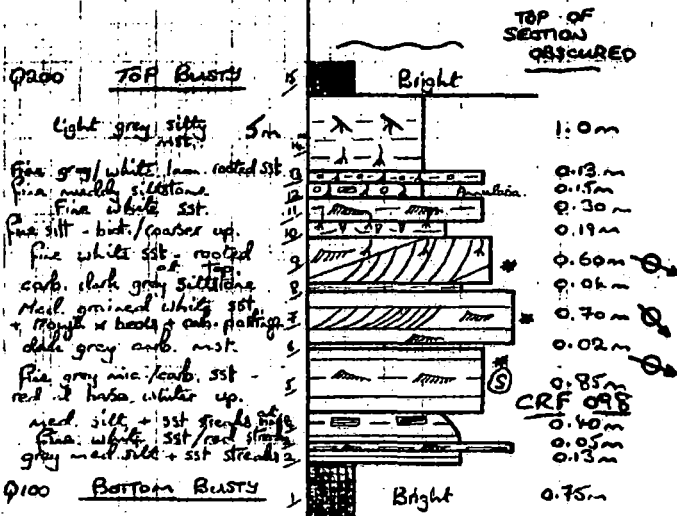 TOP OF
SECTION
OBSCURED
Q200 TOP BUSTY 15 Bright
light grey silty 5m 1.0m
mst. 14
Fine grey/white lam. rooted sst 13 0.13m
fine muddy siltstone 12 Annularia. 0.15m
Fine white sst. 11 0.30m
fine silt - biot./coarser up. 10 0.19m
fine white sst - rooted 9 0.60m
at top.
carb. dark grey siltstone 8 0.06m
Med. grained white sst 7 0.70m
+ trough x beds + carb. partings
dark grey carb. mst. 6 0.02m
fine grey mic/carb. sst - 5 S 0.85m
red at base, whiter up.
CRF 098
med. silt + sst streaks at 0.40m
fine white sst/red streaks 0.05m
grey med. silt + sst streaks 2 0.13m
Q100 BOTTOM BUSTY 1 Bright 0.75m